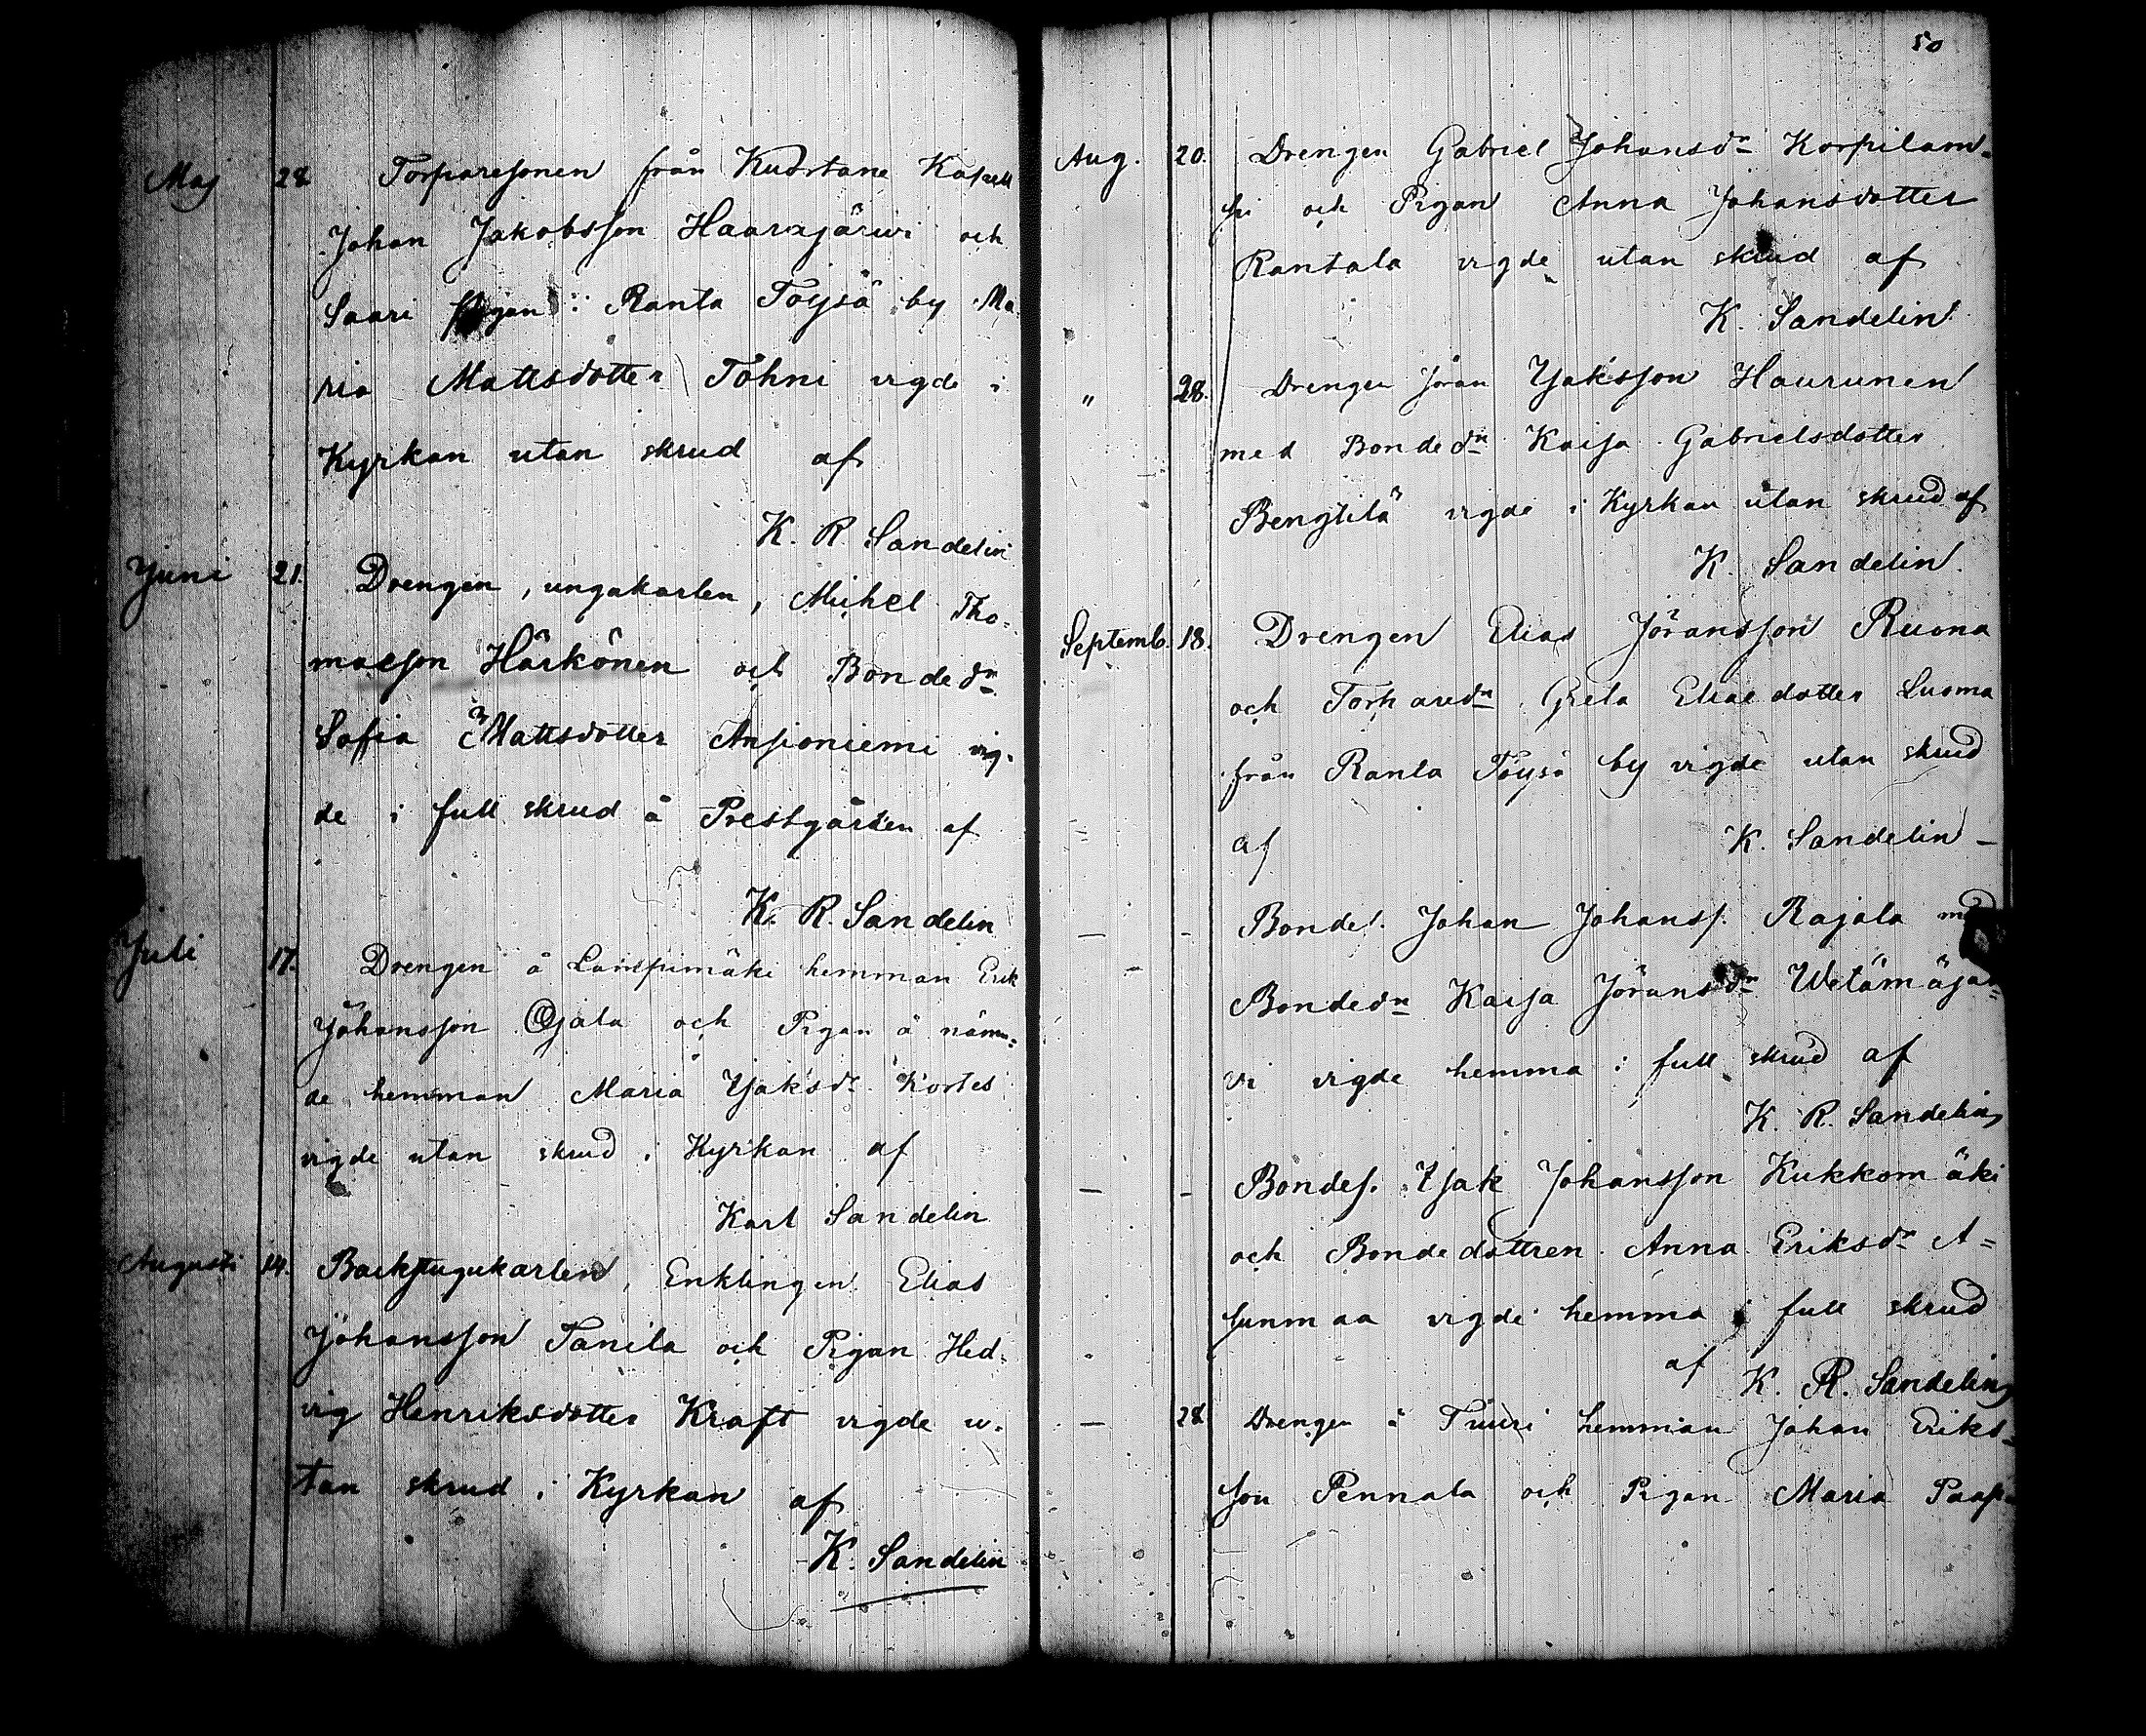 Maj 28. Torparesonen från Kuortane Kapell
Johan Jakobsson Haarajärwi och
Saari Pigan i Ranta Töysä by Ma-
ria Mattsdotter Tohni vigde i
Kyrkan utan skrud af
K. R Sandelin
Juni 21. Drengen, ungakarlen, Michel Tho-
masson Härkönen och Bonded:n
Sofia Mattsdotter Asponiemi vig-
de i full skrud å Prestgården af
K. R. Sandelin
Juli 17. Drengen å Lamspimäki hemman Erik
Johansson Ojala och Pigan å nämn-
de hemman Maria Isaksd:r Kortes
vigde utan skrud i Kyrkan af
Karl Sandelin
Augusti 14. Backstugukarlen, Enklingen Elias
Johansson Tanila och Pigan Hed-
vig Henriksdotter Kraft vigde u-
tan skrud i Kyrkan af
K. Sandelin
50
Aug. 20. Drengen Gabriel Johansd:n Korpilam-
pi och Pigan Anna Johansdotter
Rantala vigde utan skrud af
K. Sandelin
" 28. Drengen Jöran Isaksson Haurunen
med Bonded:n Kaisa Gabrielsdotter
Bengtilä vigde i Kyrkan utan skrud af
K. Sandelin.
Septemb. 18. Drengen Elias Jöransson Ruona
och Torpared:n Greta Eliaedotter Luoma
från Ranta Töysä by vigde utan skrud
af K. Sandelin –
– - Bondes. Johan Johanss. Rajala med
Bonded:n Kaisa Jöransd:n Wetämäjär-
vi vigde hemma i full skrud af
K. R. Sandelin
– - Bondes. Isak Johansson Kukkomäki
och Bondedottren Anna Eriksd:r A-
sunmaa vigde hemma i full skrud
af K. R. Sandelin
– 28 Drengen å Tuuri hemman Johan Eriks-
son Pennala och Pigan Maria